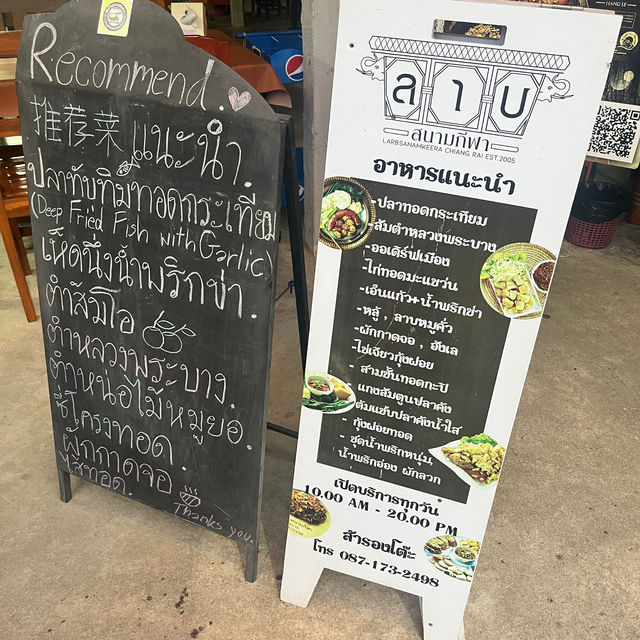 Recommend.
推荐菜 แนะนำ.
ปลาทับทิมทอดกระเทียม
(Deep Fried Fish with Garlic)
เห็ดนึ่งน้ำพริกข่า.
ตำส้มโอ
ตำหลวงพระบาง.
ตำหน่อไม้หมูยอ.
ซี่โครงทอด.
ผักกาดจอ
ไส้ทอด.
Thanks you.
ลาบ
สนามกีฬา
LARBSANAMKEERA CHIANG RAI EST.2005
อาหารแนะนำ
-ปลาทอดกระเทียม
-ส้มตำหลวงพระบาง
-ออเดิร์ฟเมือง
-ไก่ทอดมะแขว่น
-เอ็นแก้ว+น้ำพริกข่า
-หลู้ , ลาบหมูคั่ว
-ผักกาดจอ , ฮังเล
-ไข่เจียวกุ้งฝอย
- สามชั้นทอดกะปิ
- แกงส้มตูนปลาคัง
- ต้มแซ่บปลาคังน้ำใส
- กุ้งฝอยทอด
- ชุดน้ำพริกหนุ่ม,
น้ำพริกอ่อง ผักลวก
เปิดบริการทุกวัน
10.00 AM - 20.00 PM
สำรองโต๊ะ
โทร 087-173-2498